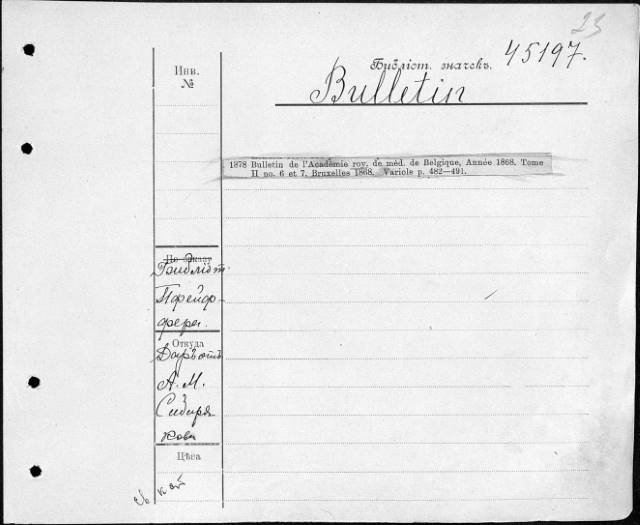 23
Инв.
№
Библіот. значекъ.
45197.
Bulletin
1878 Bulletin de l'Académie roy. de méd. de Belgique, Année 1868. Tome
II no. 6 et 7. Bruxelles 1868. Variole p. 482—491.
По заказу
Библіот.
Пфейф-
фера.
Откуда
Даръ отъ
А. М.
Сибиря
кова
Цѣна